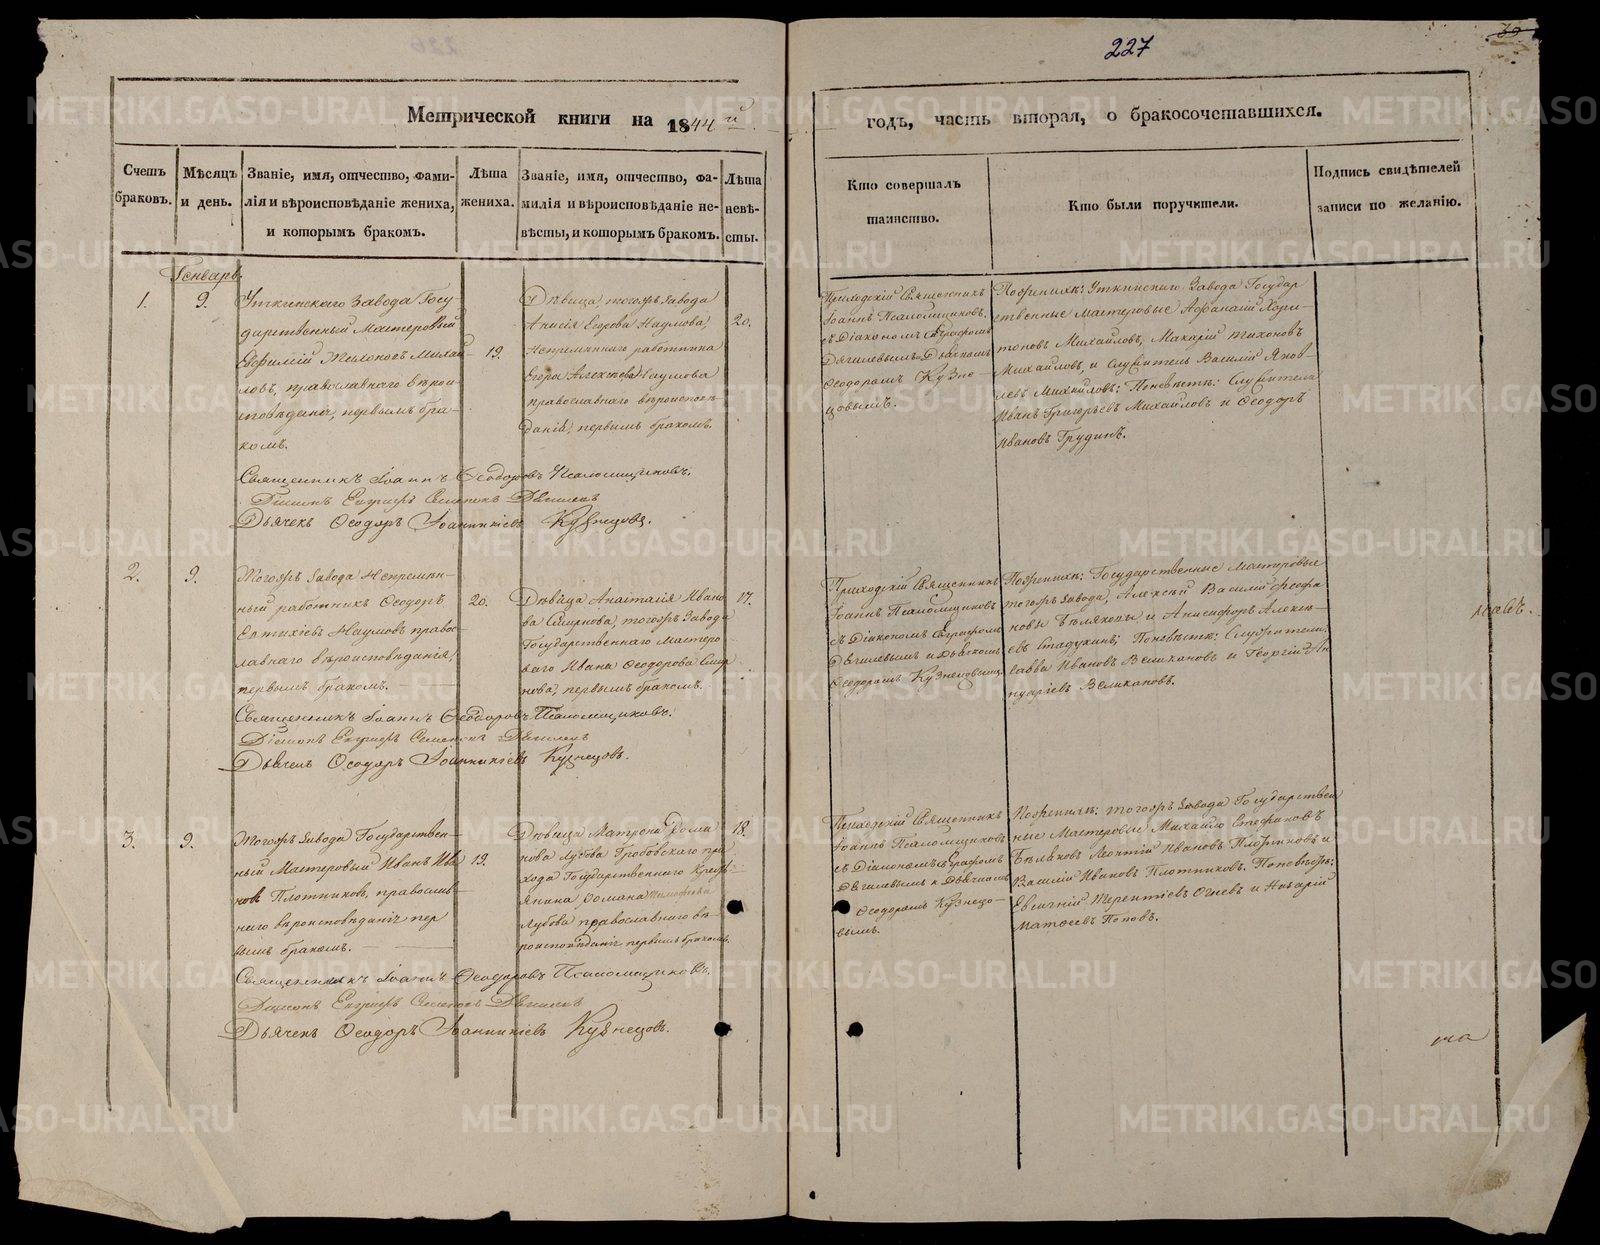 227
Метрической книги на 1844й
годъ, часть вторая, о бракосочетавшихся.
Счетъ браковъ.
Мѣсяцъ и день.
Званіе, имя, отчество, фами-
лія и вѣроисповѣданіе жениха,
и которымъ бракомъ.
Лѣта
жениха.
Званіе, имя, отчество, фа-
милія и вѣроисповѣданіе не-
вѣсты, и которымъ бракомъ.
Лѣта
невѣ-
сты.
Кто совершалъ
таинство.
Кто были поручители.
Подпись свидѣтелей
записи по желанію.
Генварь.
1.
9.
Уткинскаго Завода Госу-
дарственный Мастеровый
Евфимій Тихоновъ Михай-
ловъ, православнаго вѣрои-
сповѣданія, первымъ бра-
комъ.
19.
Дѣвица, тогожъ Завода
Анисія Егорова Наумова,
Непремѣннаго работника
Егора Алексѣева Наумова
православнаго вѣроисповѣ-
данія, первымъ бракомъ.
20.
Приходскій Священникъ
Іоаннъ Псаломщиковъ,
съ Діакономъ Евграфомъ
Дягилевымъ и Дьячкомъ
Ѳеодоромъ Кузне-
цовымъ.
Поженихѣ: Уткинскаго Завода Государ
ственные мастеровые Афанасій Хари-
тоновъ Михайловъ, Макарій Тихоновъ
Михайловъ, и Служитель Василій Яков-
левъ Михайловъ: Поневѣстѣ: Служители
Иванъ Григорьевъ Михайловъ и Ѳеодоръ
Ивановъ Трудинъ.
Священникъ Іоаннъ Ѳеодоровъ Псаломщиковъ.
Діаконъ Евграфъ Семеновъ Дягилевъ
Дьячекъ Ѳеодоръ Іоанникіевъ Кузнецовъ.
2.
9.
Тогожъ Завода Непремѣн-
ный работникъ Ѳеодоръ
Евтихіевъ Наумовъ право-
славнаго вѣроисповѣданія,
первымъ бракомъ.
20.
Дѣвица Анастасія Ивано
ва Смирнова, тогожъ Завода
Государственнаго Мастеро
ваго Ивана Ѳеодорова Смир
нова, первымъ бракомъ.
17.
Приходскій Священникъ
Іоаннъ Псаломщиковъ
съ Діакономъ Евграфомъ
Дягилевымъ и Дьячкомъ
Ѳеодоромъ Кузнецовымъ.
Поженихѣ: Государственные Мастеровые
тогожъ Завода, Алексѣй Василій Ѳеофа
новы Бѣляковы, и Анисифоръ Алексѣ-
евъ Стадухинъ; Поневѣстѣ: Служители
Савва Ивановъ Великановъ и Георгій Ян
нуаріевъ Великановъ.
Священникъ Іоаннъ Ѳеодоровъ Псаломщиковъ.
Діаконъ Евграфъ Семеновъ Дягилевъ
Дьячекъ Ѳеодоръ Іоанникіевъ Кузнецовъ.
3.
9.
Тогожъ Завода Государствен-
ный Мастеровый Иванъ Ива
новъ Плотниковъ, православ-
наго вѣроисповѣданія пер
вымъ бракомъ.
19.
Дѣвица Матрона Рома
нова Лузова Гробовскаго при
хода Государственнаго Крестъ-
янина Романа Тимофеева
Лузова православнаго вѣ-
роисповѣданія первымъ бракомъ.
18.
Приходскій Священникъ
Іоаннъ Псаломщиковъ
съ Діакономъ Евграфомъ
Дягилевымъ и Дьячкомъ
Ѳеодоромъ Кузнецо-
вымъ.
Поженихѣ: тогожъ Завода Государствен
ные Мастеровые Михайло Стефановъ
Бѣляковъ Леонтій Ивановъ Плотниковъ и
Василій Ивановъ Плотниковъ. Поневѣстѣ:
Евгеній Терентіевъ Огневъ и Назарій
Матѳеевъ Поповъ.
Священникъ Іоаннъ Ѳеодоровъ Псаломщиковъ.
Діаконъ Евграфъ Семеновъ Дягилевъ
Дьячекъ Ѳеодоръ Іоанникіевъ Кузнецовъ.
METRIKI.GASO-URAL.RU